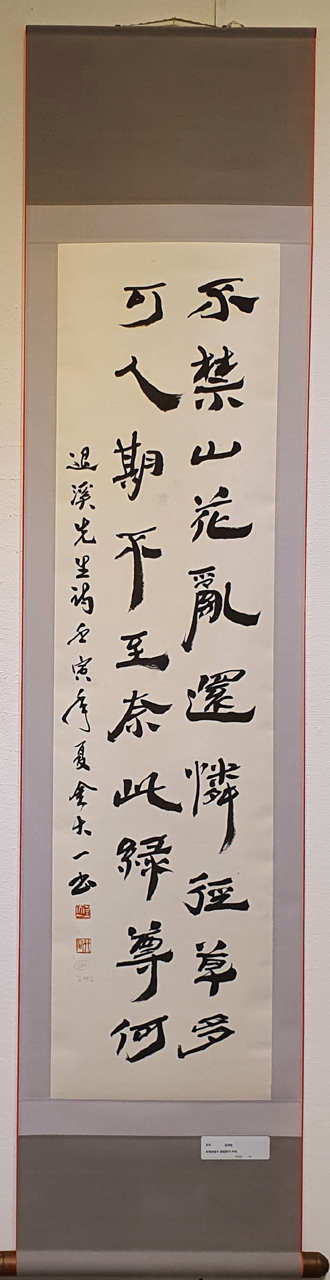 不禁山花亂還憐徑草多
可人期不至奈此綠尊何
退溪先生詩壬寅年夏金大一書